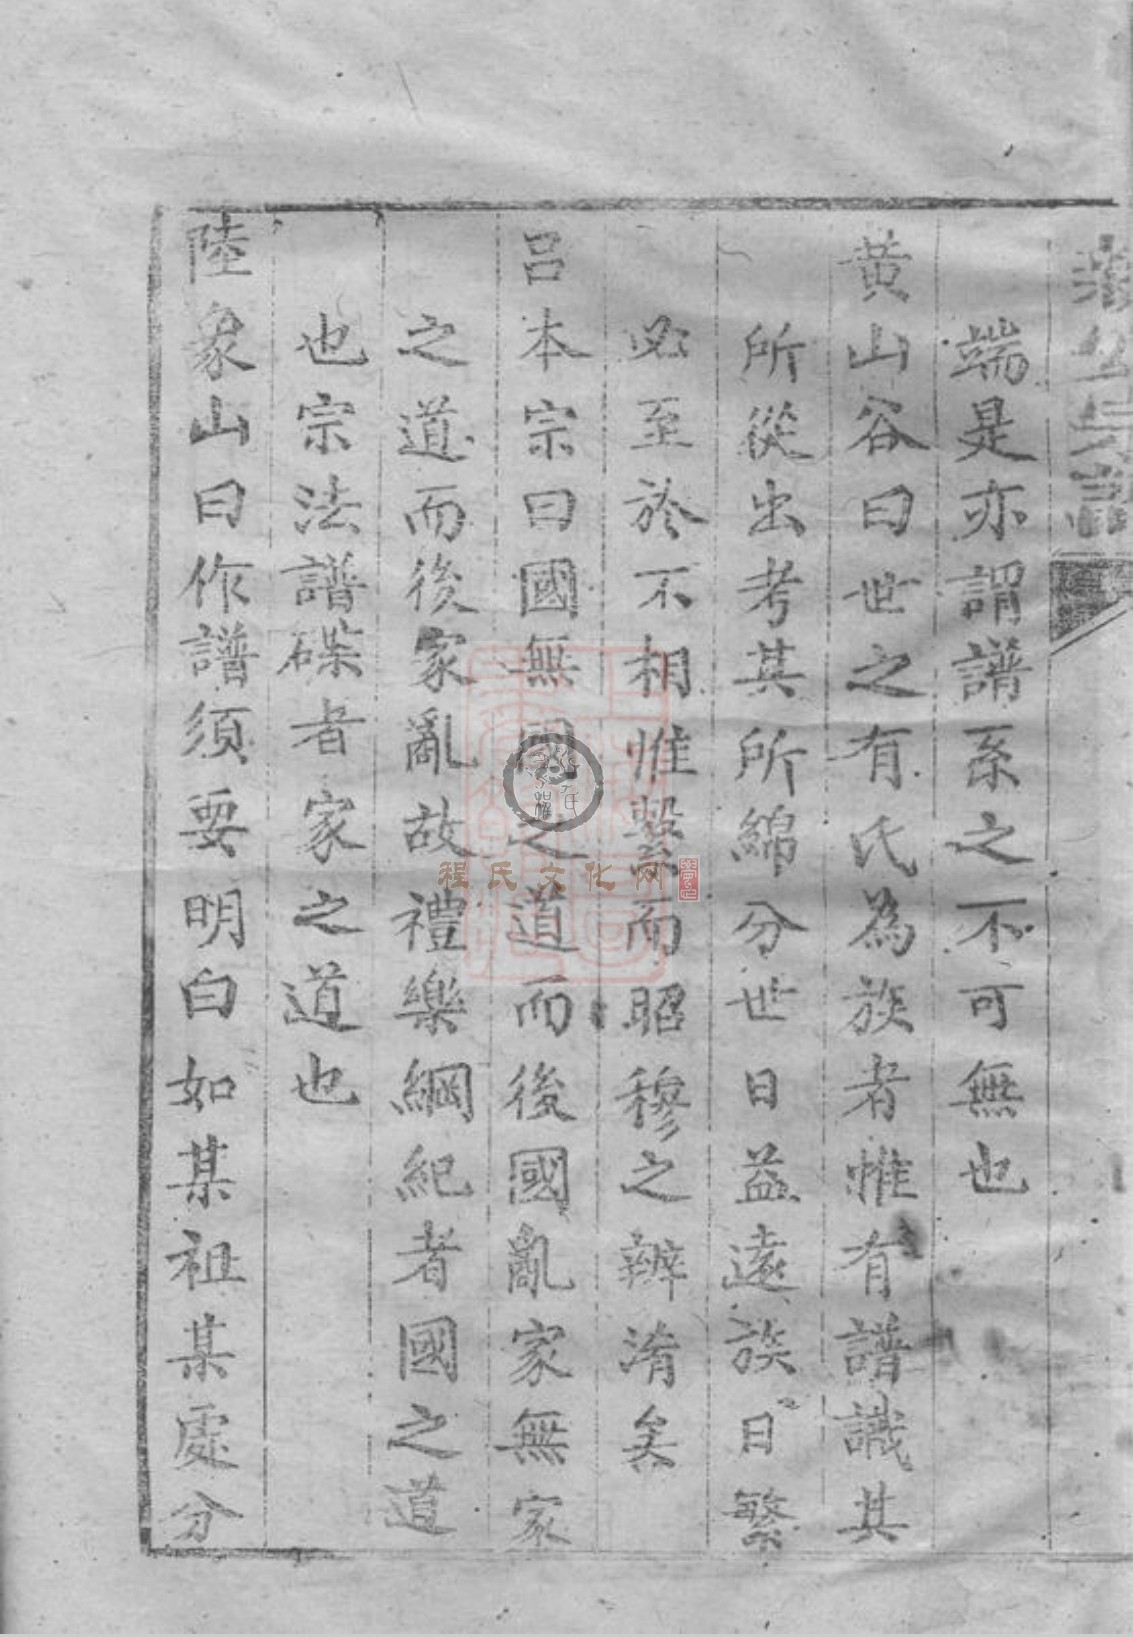 端是亦謂譜系之不可無也
黃山谷曰世之有氏為族者惟有譜識其
所從出考其所綿分世日益遠族日繁
必至於不相惟繫而昭穆之辨淆矣
呂本宗曰國無國之道而後國亂家無家
之道而後家亂故禮樂綱紀者國之道
也宗法譜碟者家之道也
陸象山曰作譜須要明白如某祖某處分
程氏文化网